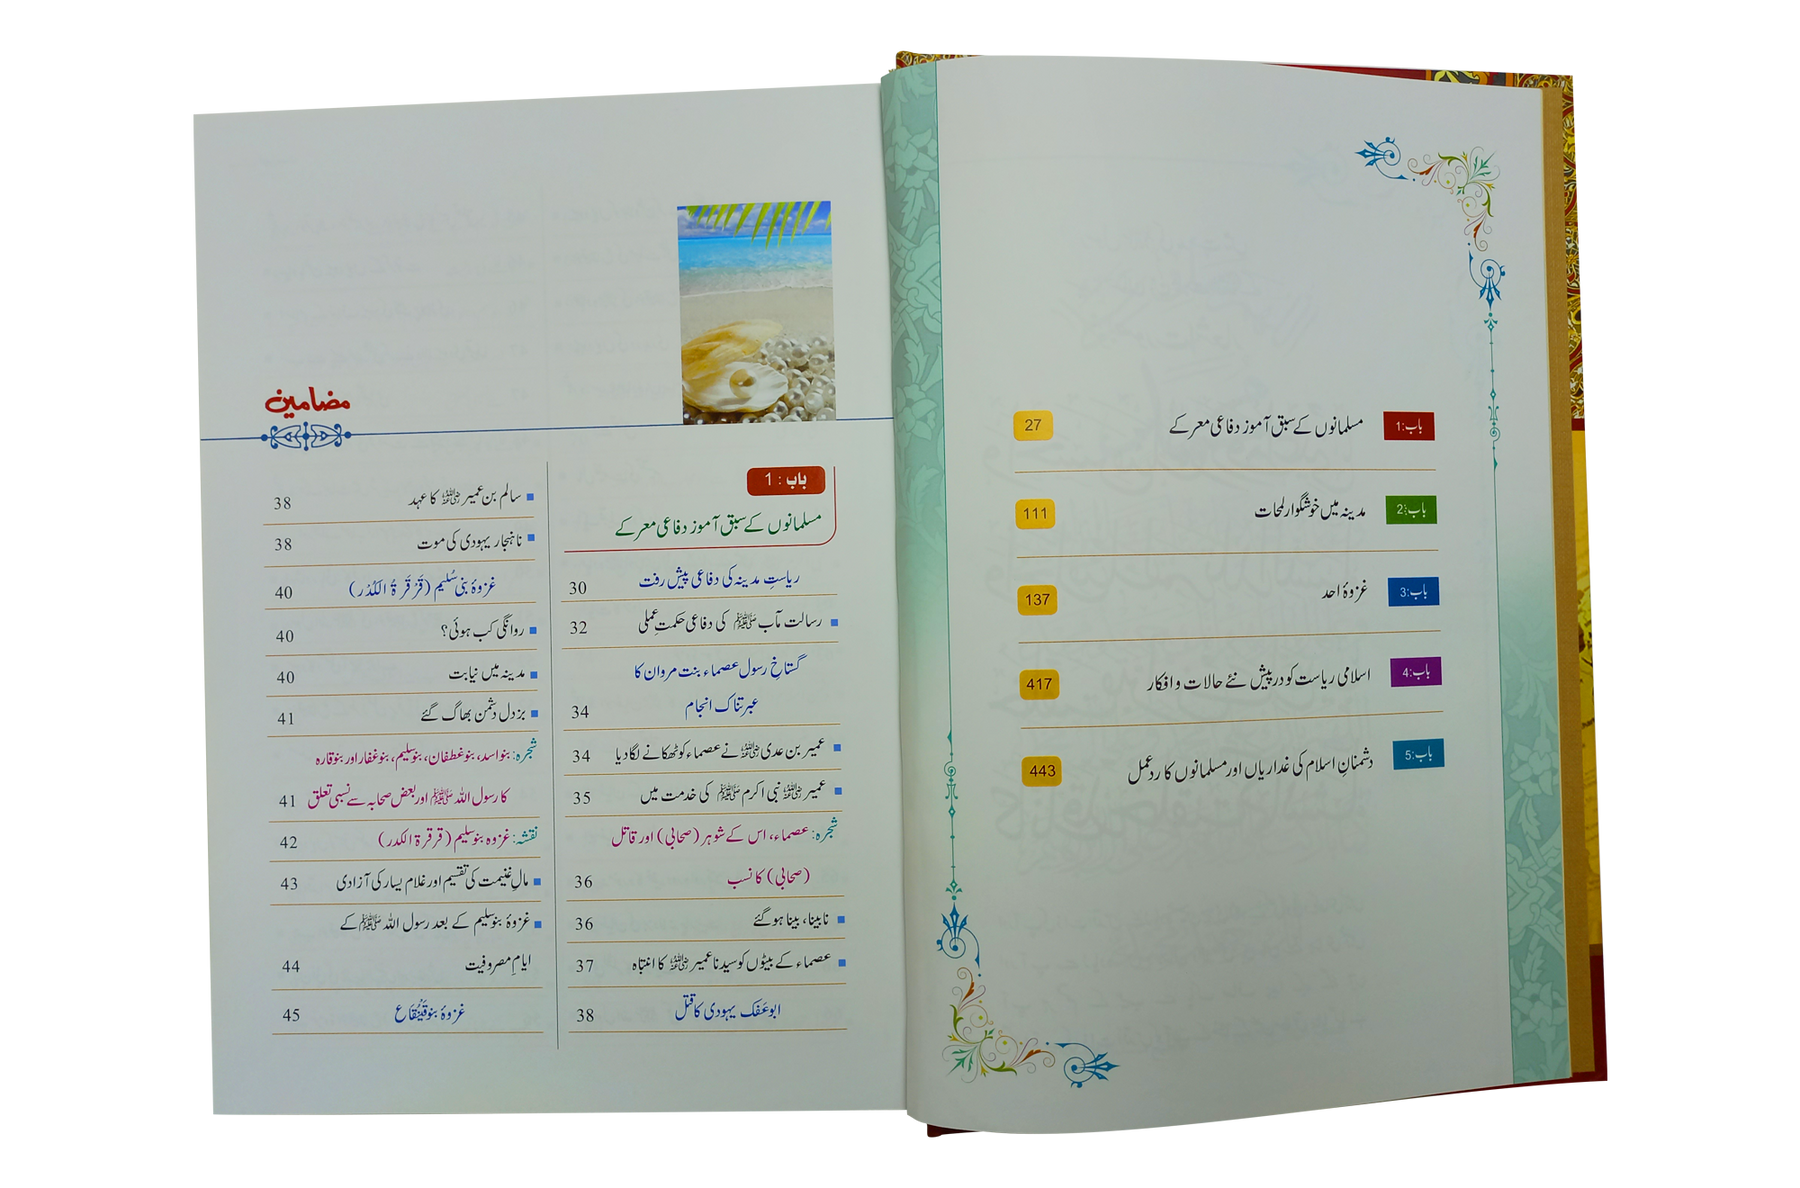 باب:1 مسلمانوں کے سبق آموز دفاعی معرکے 27
باب:2 مدینہ میں خوشگوار لمحات 111
باب:3 غزوۂ احد 137
باب:4 اسلامی ریاست کو درپیش نئے حالات و افکار 417
باب:5 دشمنانِ اسلام کی غداریاں اور مسلمانوں کا ردِعمل 443
مضامین
باب : 1
مسلمانوں کے سبق آموز دفاعی معرکے
ریاستِ مدینہ کی دفاعی پیش رفت 30
رسالت مآب ﷺ کی دفاعی حکمتِ عملی 32
گستاخِ رسول عصماء بنت مروان کا
عبرتناک انجام 34
عمیر بن عدی رضی اللہ عنہ نے عصماء کو ٹھکانے لگا دیا 34
عمیر رضی اللہ عنہ نبی اکرم ﷺ کی خدمت میں 35
شجرہ: عصماء، اس کے شوہر (صحابی) اور قاتل
(صحابی) کا نسب 36
نابینا، بینا ہو گئے 36
عصماء کے بیٹوں کو سیدنا عمیر رضی اللہ عنہ کا انتباہ 37
ابو عَفَک یہودی کا قتل 38
سالم بن عمیر رضی اللہ عنہ کا عہد 38
ناہنجار یہودی کی موت 38
غزوۂ بنی سُلیم (قَرْقَرۃُ الکُدْر) 40
روانگی کب ہوئی؟ 40
مدینہ میں نیابت 40
بزدل دشمن بھاگ گئے 41
شجرہ: بنو اسد، بنو غطفان، بنو سلیم، بنو غفار اور بنو قارہ
کا رسول اللہ ﷺ اور بعض صحابہ سے نسبی تعلق 41
نقشہ: غزوہ بنو سلیم (قرقرۃ الکدر) 42
مالِ غنیمت کی تقسیم اور غلام یسار کی آزادی 43
غزوۂ بنو سلیم کے بعد رسول اللہ ﷺ کے
ایامِ مصروفیت 44
غزوۂ بنو قَیْنُقَاع 45